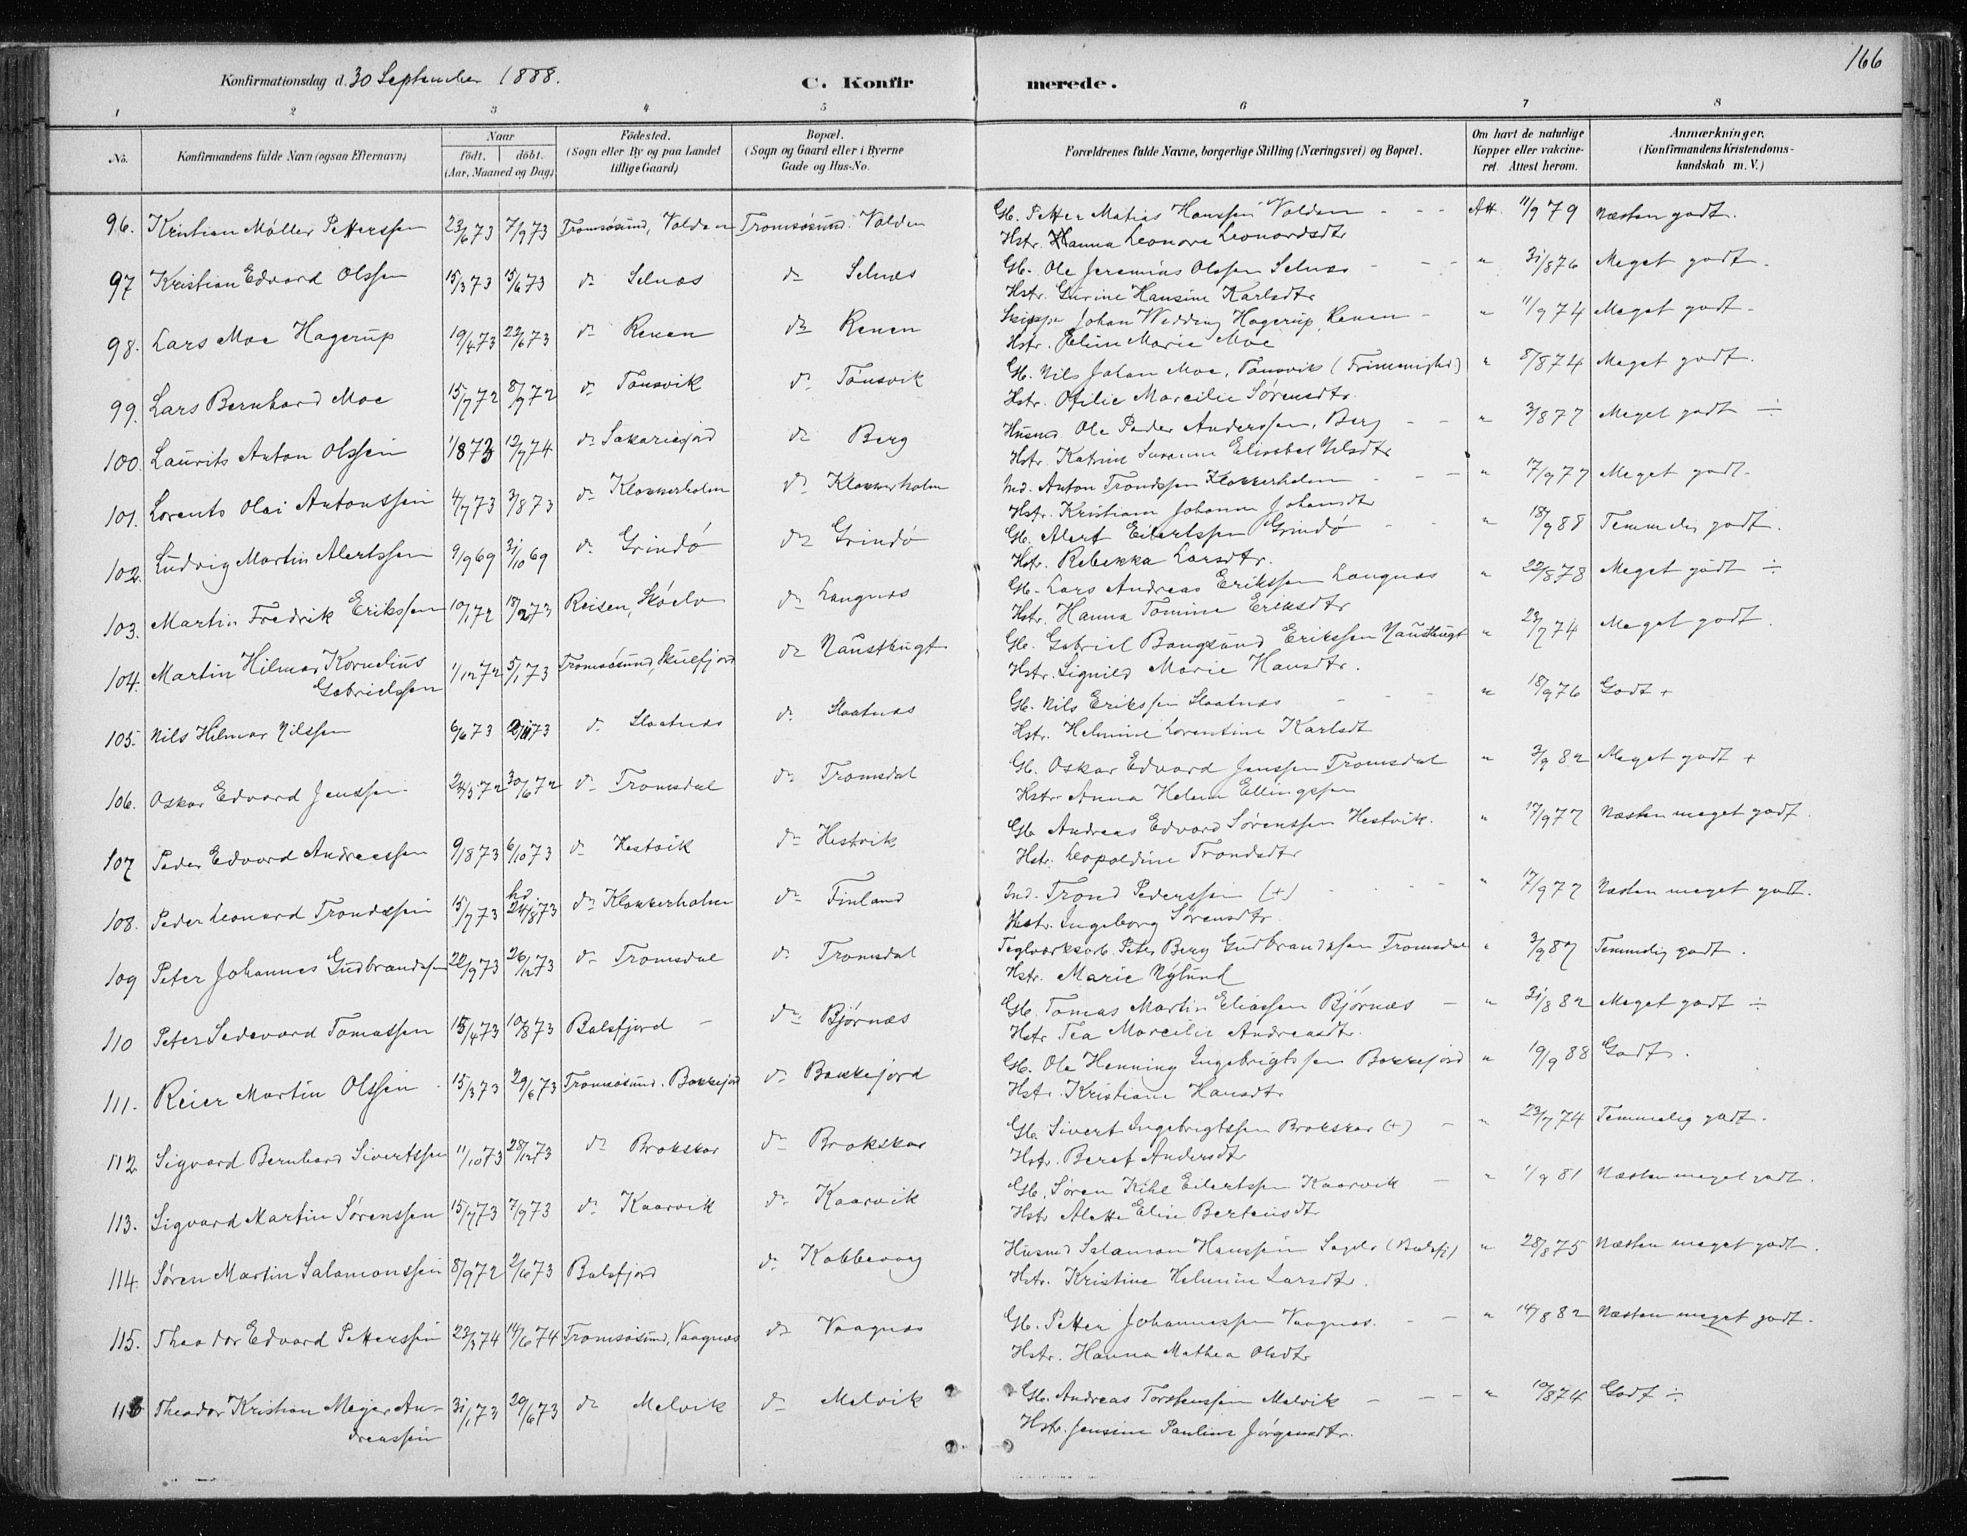 166
Konfirmationsdag d. 30 September 1888.
C. Konfirmerede.
1 2 3 4 5 6 7 8
No. Konfirmandens fulde Navn (ogsaa Efternavn) Naar födt. döbt. (Aar, Maaned og Dag) Födested. (Sogn eller By og paa Landet tillige Gaard) Bopæl. (Sogn og Gaard eller i Byerne Gade og Hus-No. Forældrenes fulde Navne, borgerlige Stilling (Næringsvei) og Bopæl. Om havt de naturlige Kopper eller vakcineret. Attest herom. Anmærkninger. (Konfirmandens Kristendomskundskab m. V.)
96. Kristian Møller Petterssen 23/6 73 7/9 73 Tromsøsund, Volden Tromsøsund. Volden Gb. Petter Matias Hanssen Volden - - - Att. 11/9 79 Næsten godt.
Hstr. Hanna Leonore Leonardsdtr
97 Kristian Edvard Olssen 15/3 73 15/6 73 do Selnæs do Selnæs Gb. Ole Jeremias Olssen Selnæs - - - " 31/8 76 Meget godt.
Hstr. Gurine Hansine Karlsdtr
98. Lars Moe Hagerup 19/4 73 22/6 73 do Renen do Renen Skipper Johan Wedding Hagerup, Renen - " 11/9 74 Meget godt.
Hstr. Marie Moe
99. Lars Bernhard Moe 15/7 72 8/9 72 do Tönsvik do Tönsvik Gb. Nils Johan Moe, Tönsvik " 8/8 74 Meget godt.
Hstr. Ofilie Marcilie Sørensdtr.
100. Laurits Anton Olssen 1/8 73 12/7 74 do Sakariefjord do Berg Husmd Ole Peder Anderssen, Berg - - " 3/8 77 Meget godt ÷
Hstr. Katrine Susanne Elisabet Nilsdtr
101. Lorents Olai Antonssen 4/7 73 3/8 73 do Klokkerholm do Klokkerholm Ind. Anton Trondssen Klokkerholm - - " 17/9 77 Meget godt.
Hstr. Kristiane Johanne Johansdtr
102. Ludvig Martin Alertssen 9/9 69 31/10 69 do Grindö do Grindö Gb. Alert Eilertssen Grindö - - " 18/9 88 Temmelig godt.
Hstr. Rebekka Larsdtr.
103. Martin Fredrik Erikssen 10/1 72 18/2 73 Reisen, Skóelv do Langnæs Gb. Lars Andreas Erikssen Langnæs " 22/8 78 Meget godt ÷
Hstr. Hanna Tomine Eriksdtr
104. Martin Hilmar Kornelius Gabrielssen 1/12 72 5/1 73 Tromsøsund, Skulfjord do Naustbugt Gb. Gabriel Bangsund Erikssen Naustbugt " 23/7 74 Meget godt.
Hstr. Signild Marie Hansdtr.
105. Nils Hilmar Nilssen 6/6 73 73 do Slaatnæs do Slaatnæs Gb. Nils Erikssen Slaatnæs - - - " 18/9 76 Godt +
Hstr. Helmine Lorentine Karlsdt
106. Oskar Edvard Jenssen 24/3 72 30/6 72 do Tromsdal do Tromsdal Gb. Oskar Edvard Jenssen Tromsdal " 3/9 82 Meget godt +
Hstr. Anna Helene Ellingssen
107 Peder Edvard Andreassen 9/8 73 6/10 73 do Hestvik do Hestvik Gb. Andreas Edvard Sørenssen Hestvik. " 17/9 77 Næsten meget godt.
Hstr. Leopoldine Trondsdtr
108. Peder Leonard Trondssen 15/7 73 hd. 24/8 73 do Klokkerholm do Finland Ind. Trond Pederssen (+) - - - " 17/9 77 Næsten meget godt.
Hstr. Ingeborg Sørensdtr.
109 Peter Johannes Gudbrandssen 22/9 73 26/12 73 do Tromsdal do Tromsdal Teglværksarb. Peter Berg Gudbrandssen Tromsdal " 3/9 87 Temmelig godt.
Hstr. Marie Nylund
110 Peter Sedevard Tomassen 15/4 73 10/8 73 Balsfjord - do Bjørnæs Gb. Tomas Martin Eliassen Bjørnæs - " 31/8 82 Meget godt ÷
Hstr Tea Marcilie Andreasdtr.
111. Reier Martin Olssen 15/3 73 29/6 73 Tromsøsund. Bakkejord do Bakkejord Gb. Ole Henning Ingebrigtssen Bakkejord " 19/9 88 Godt.
Hstr. Kristiane Hansdtr
112 Sigvard Bernhard Sivertssen 11/10 73 28/12 73 do Brokskar do Brokskar Gb. Sivert Ingebrigtssen Brokskar (+) - " 23/7 74 Temmelig godt.
Hstr. Beret Andersdtr
113. Sigvard Martin Sørenssen 15/7 73 7/9 73 do Kaarvik do Kaarvik Gb. Søren Kihl Eilertssen Kaarvik - " 1/9 81 Næsten meget godt.
Hstr Alette Elise Berteusdtr
114. Søren Martin Salamonssen 8/9 72 2/6 73 Balsfjord do Kobbevaag Husmd Salamon Hanssen (Balsfj) " 28/8 75 Næsten meget godt.
Hstr. Kristine Helmine Larsdtr.
115. Theodor Edvard Petterssen 23/3 74 14/6 74 Tromsøsund, Vaagnæs do Vaagnæs Gb. Petter Johannessen Vaagnæs. - - " 14/8 82 Næsten meget godt.
Hstr. Hanna Mathea Olsdtr
116 Theodor Kristian Meyer Andreassen 31/1 73 29/6 73 do Melvik do Melvik Gb. Andreas Torstenssen Melvik - - - " 10/8 74 Godt ÷
Hstr. Jensine Pauline Jørgensdtr.